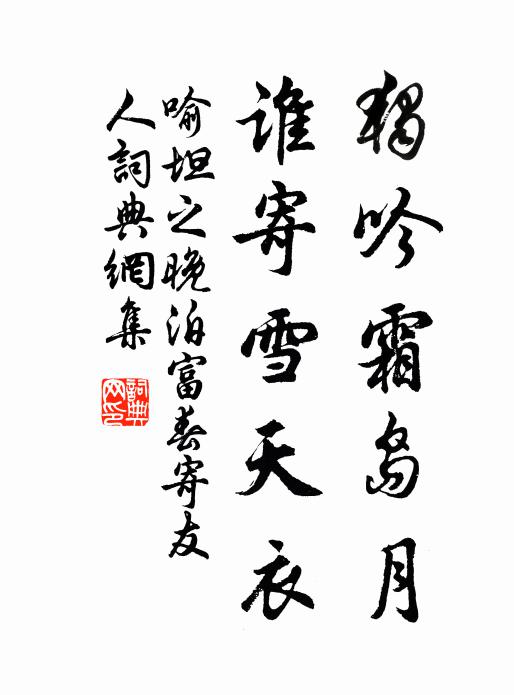 獨吟霜岛月
谁寄雪天衣
喻坦之晚泊富春寄友
人詞典網集
詞典网印